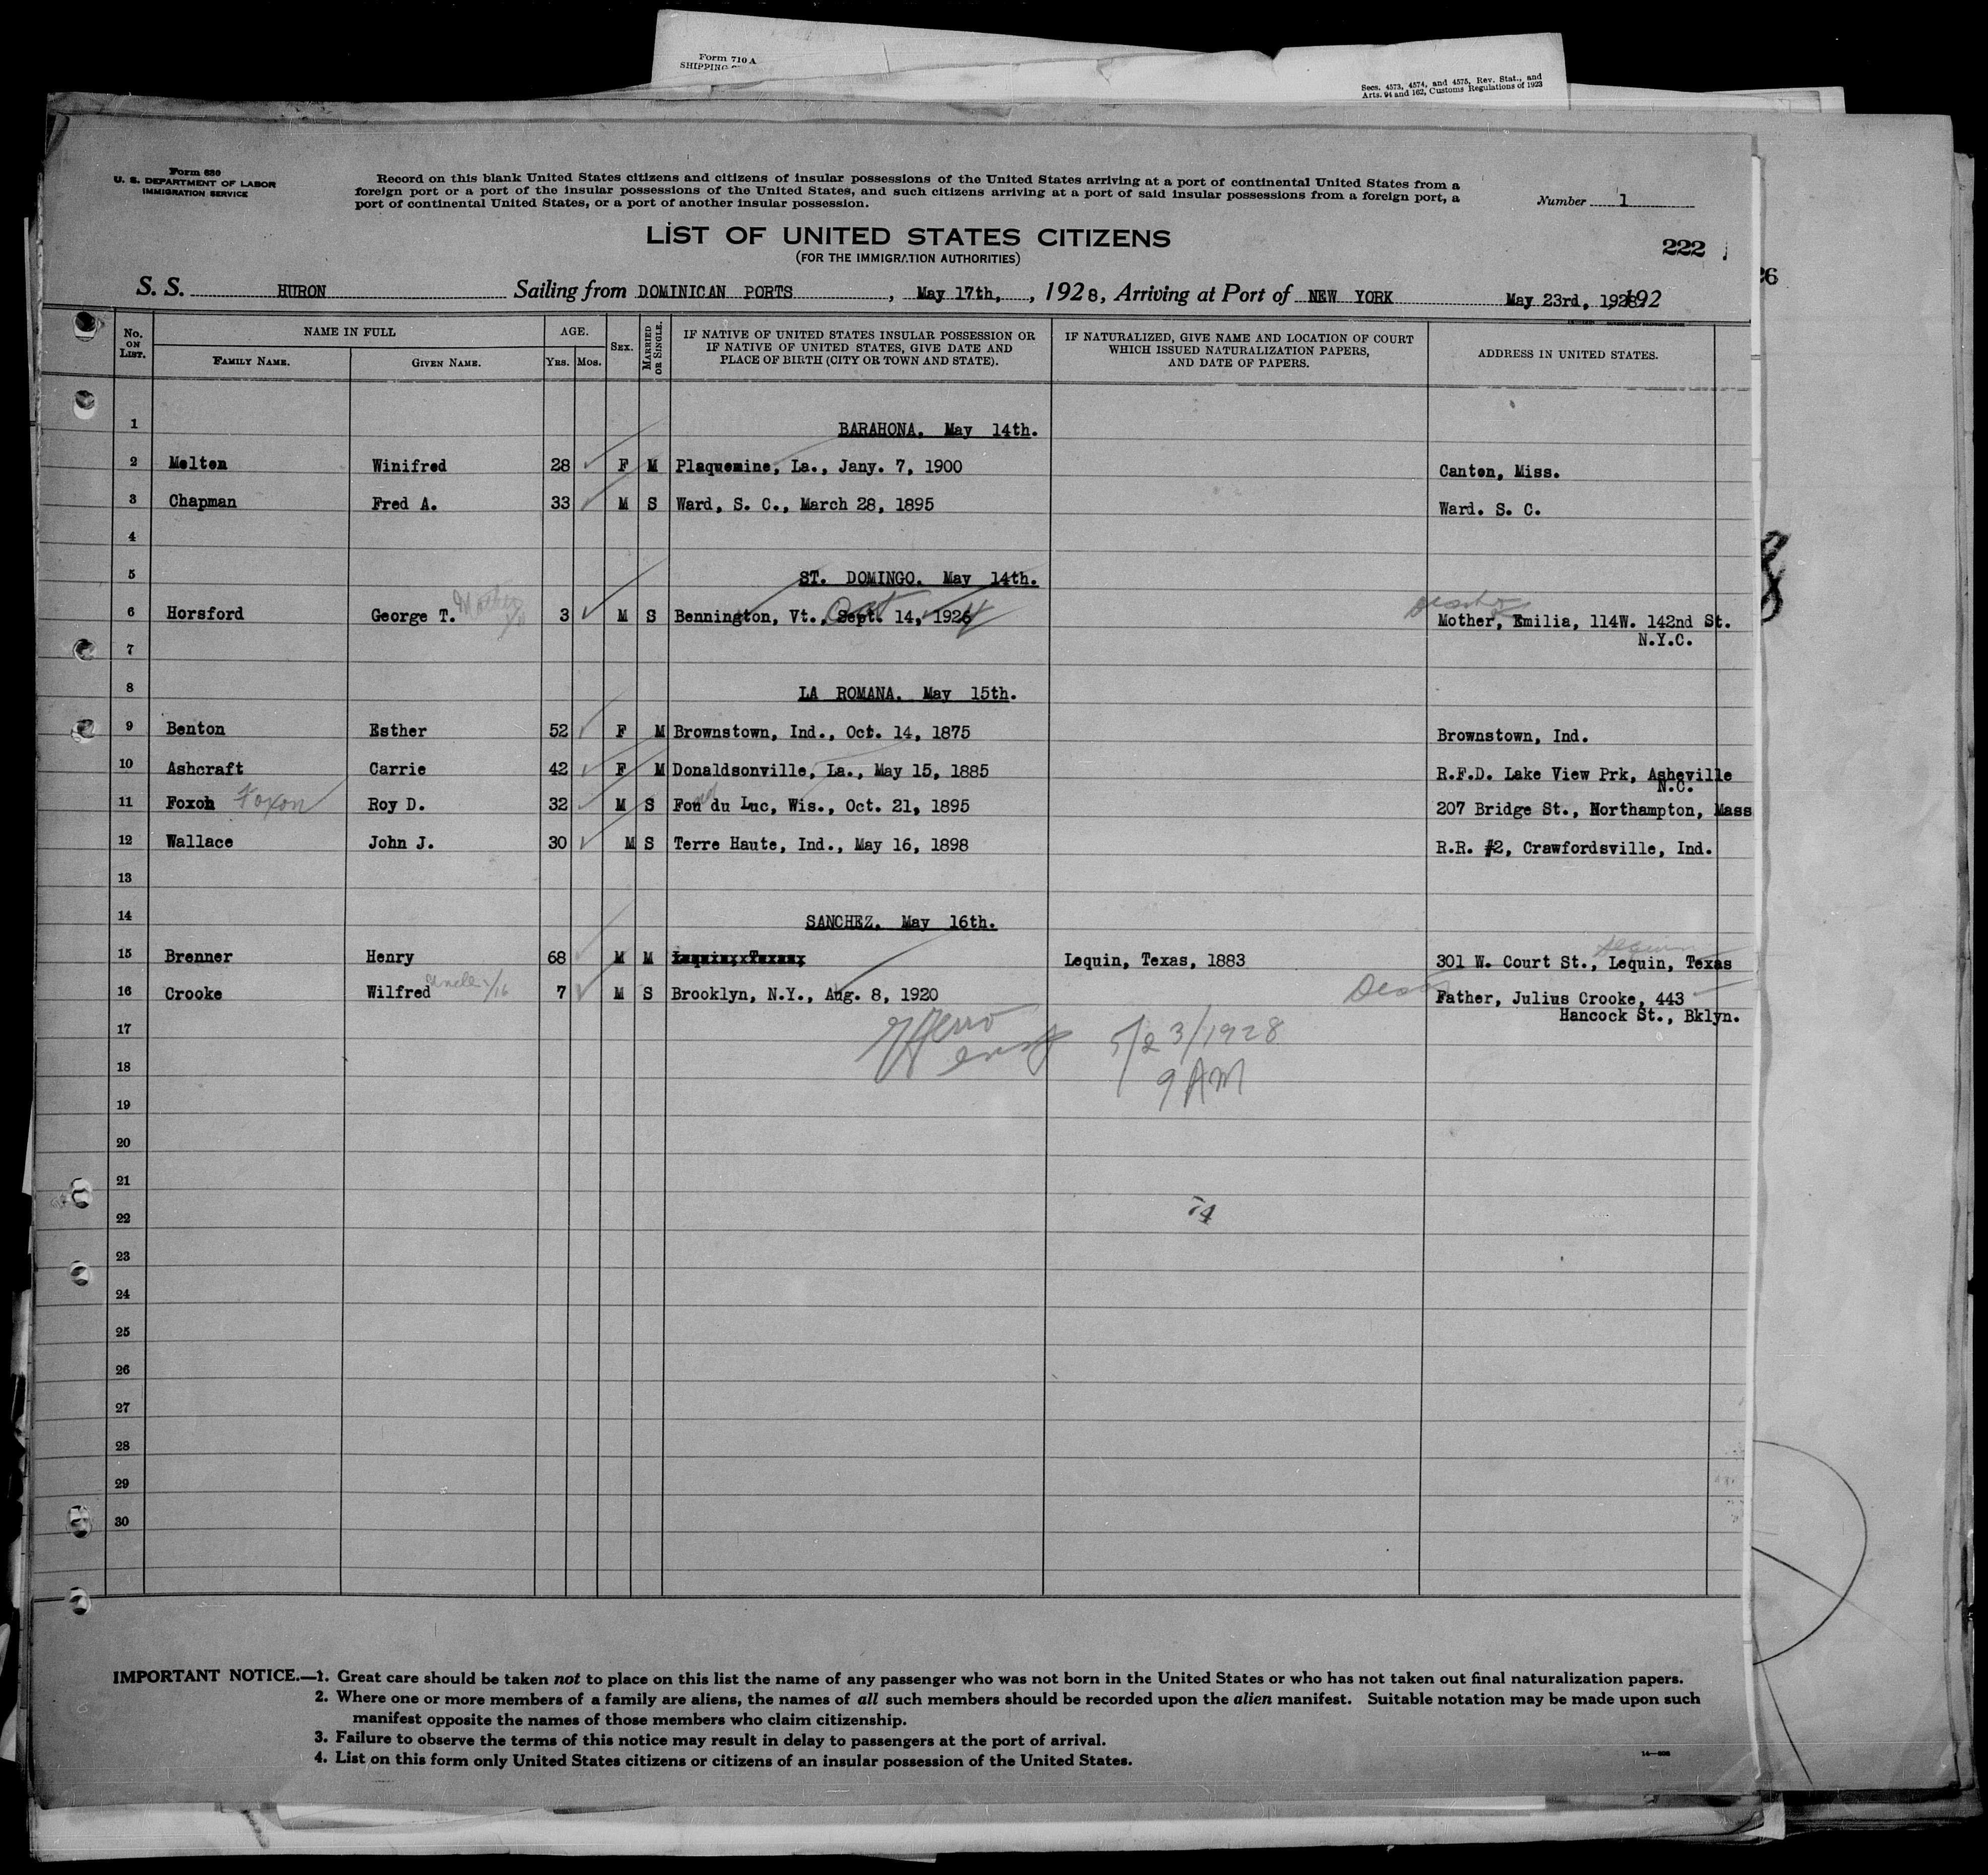 Form 710 A
SHIPPING
Secs. 4573, 4574, and 4575, Rev. Stat., and
Arts. 94 and 162, Customs Regulations of 1923
Form 630
U. S. DEPARTMENT OF LABOR
IMMIGRATION SERVICE
Record on this blank United States citizens and citizens of insular possessions of the United States arriving at a port of continental United States from a
foreign port or a port of the insular possessions of the United States, and such citizens arriving at a port of said insular possessions from a foreign port, a
port of continental United States, or a port of another insular possession.
Number 1
LIST OF UNITED STATES CITIZENS
(FOR THE IMMIGRATION AUTHORITIES)
222
26
S. S. HURON Sailing from DOMINICAN PORTS, May 17th, , 1928, Arriving at Port of NEW YORK May 23rd, 1928, 192
No. ON LIST. NAME IN FULL AGE. SEX. MARRIED OR SINGLE. IF NATIVE OF UNITED STATES INSULAR POSSESSION OR IF NATIVE OF UNITED STATES, GIVE DATE AND PLACE OF BIRTH (CITY OR TOWN AND STATE). IF NATURALIZED, GIVE NAME AND LOCATION OF COURT WHICH ISSUED NATURALIZATION PAPERS, AND DATE OF PAPERS. ADDRESS IN UNITED STATES.
FAMILY NAME. GIVEN NAME. YRS. MOS.
1 BARAHONA. May 14th.
2 Melton Winifred 28 F M Plaquemine, La., Jany. 7, 1900 Canton, Miss.
3 Chapman Fred A. 33 M S Ward, S. C., March 28, 1895 Ward. S. C.
4
5 ST. DOMINGO. May 14th.
6 Horsford George T. Mother 3 M S Bennington, Vt., Sept. Oct 14, 1926 4 Mother, Emilia, 114W. 142nd St.
N.Y.C.
7
8 LA ROMANA. May 15th.
9 Benton Esther 52 F M Brownstown, Ind., Oct. 14, 1875 Brownstown, Ind.
10 Ashcraft Carrie 42 F M Donaldsonville, La., May 15, 1885 R.F.D. Lake View Prk, Asheville
N.C.
11 Foxon Foxon Roy D. 32 M S Fon du Luc, Wis., Oct. 21, 1895 207 Bridge St., Northampton, Mass
12 Wallace John J. 30 M S Terre Haute, Ind., May 16, 1898 R.R. #2, Crawfordsville, Ind.
13
14 SANCHEZ. May 16th.
Seguin
15 Brenner Henry 68 M M Lequin, Texas, 1883 301 W. Court St., Lequin, Texas
16 Crooke Wilfred Uncle 7 M S Brooklyn, N.Y., Aug. 8, 1920 Father, Julius Crooke, 443
Hancock St., Bklyn.
17
5/23/1928
18
9 AM
19
20
21
22
23
24
25
26
27
28
29
30
IMPORTANT NOTICE.—1. Great care should be taken not to place on this list the name of any passenger who was not born in the United States or who has not taken out final naturalization papers.
2. Where one or more members of a family are aliens, the names of all such members should be recorded upon the alien manifest. Suitable notation may be made upon such
manifest opposite the names of those members who claim citizenship.
3. Failure to observe the terms of this notice may result in delay to passengers at the port of arrival.
4. List on this form only United States citizens or citizens of an insular possession of the United States.